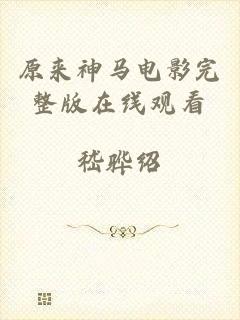 原来神马电影完
整版在线观看
嵇晔绍